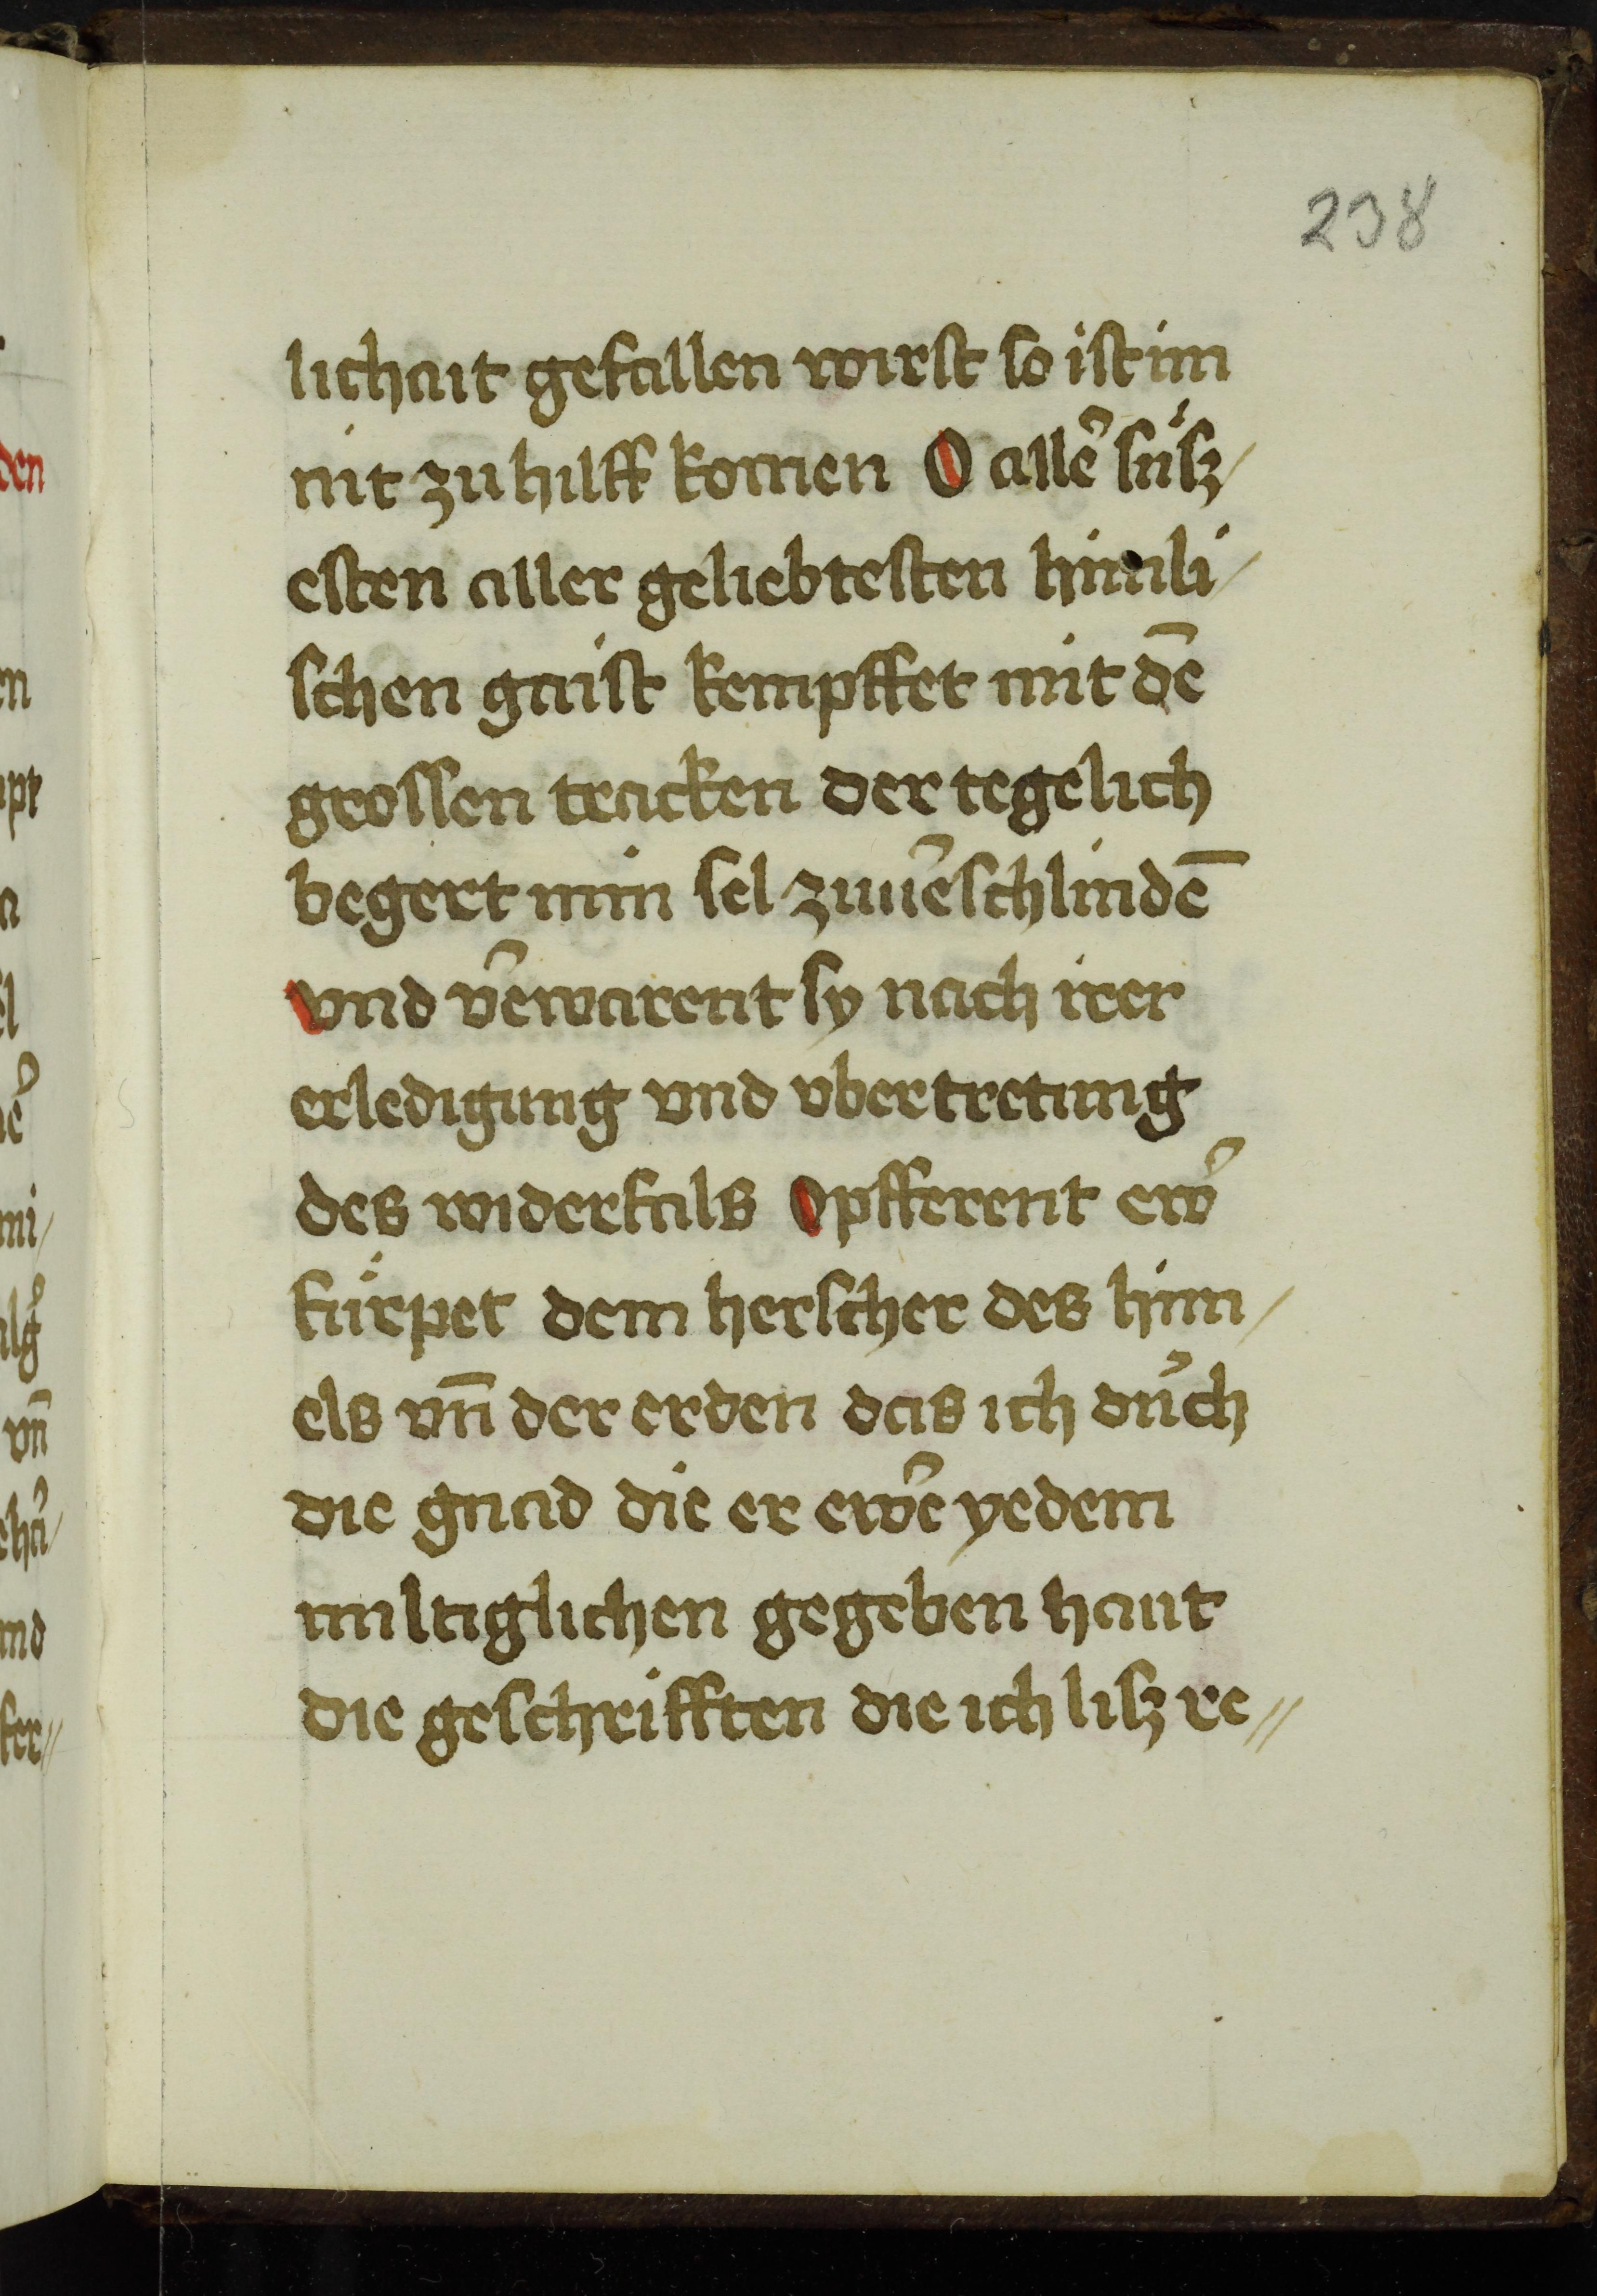 238
lichait gefallen wirst so ist im
nit zu hilff komen O alle᷑ süsz/
esten aller geliebtesten himli/
schen gaist kempffet mit dē
grossen tracken der tegelich
begert min sel zuue᷑schlindē
vnd ve᷑warent sy nach irer
erledigung vnd vbertretung
des widerfals Opfferent ew᷑
fürpet dem herscher des him/
els vn̄ der erden das ich du᷑ch
die gnad die er ew᷑e yedem
miltiglichen gegeben haut
die geschrifften die ich lisz re//